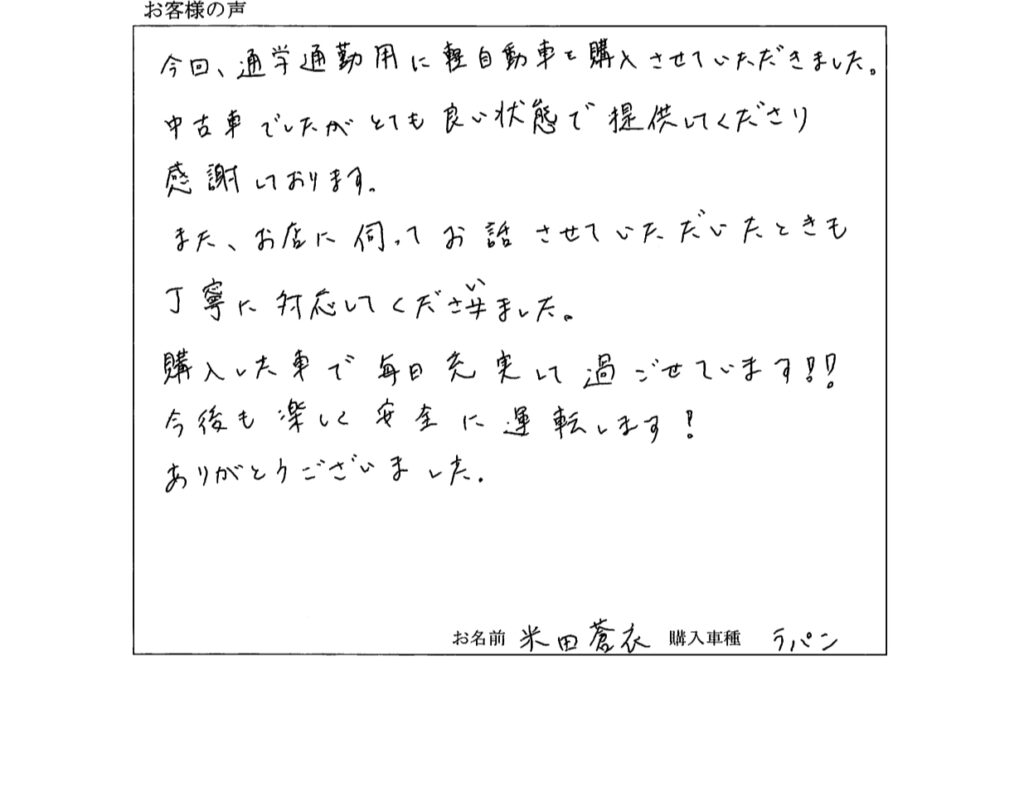 お客様の声
今回、通学通勤用に軽自動車を購入させていただきました。
中古車でしたがとても良い状態で提供してくださり
感謝しております。
また、お店に伺ってお話させていただいたときも
丁寧に対応してくださいました。
購入した車で毎日充実して過ごせています!!
今後も楽しく安全に運転します!
ありがとうございました。
お名前 米田蒼衣 購入車種 ラパン